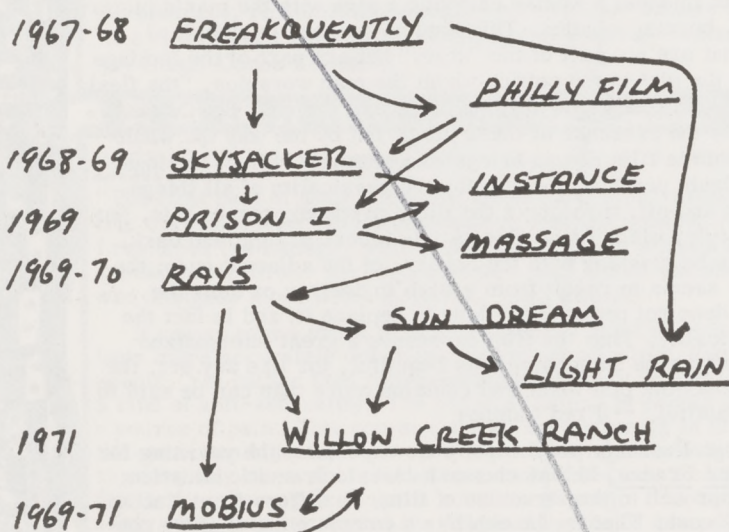 1967-68 FREAKQUENTLY
PHILLY FILM
1968-69 SKYJACKER
INSTANCE
1969 PRISON I
MASSAGE
1969-70 RAYS
SUN DREAM
LIGHT RAIN
1971 WILLOW CREEK RANCH
1969-71 MOBIUS